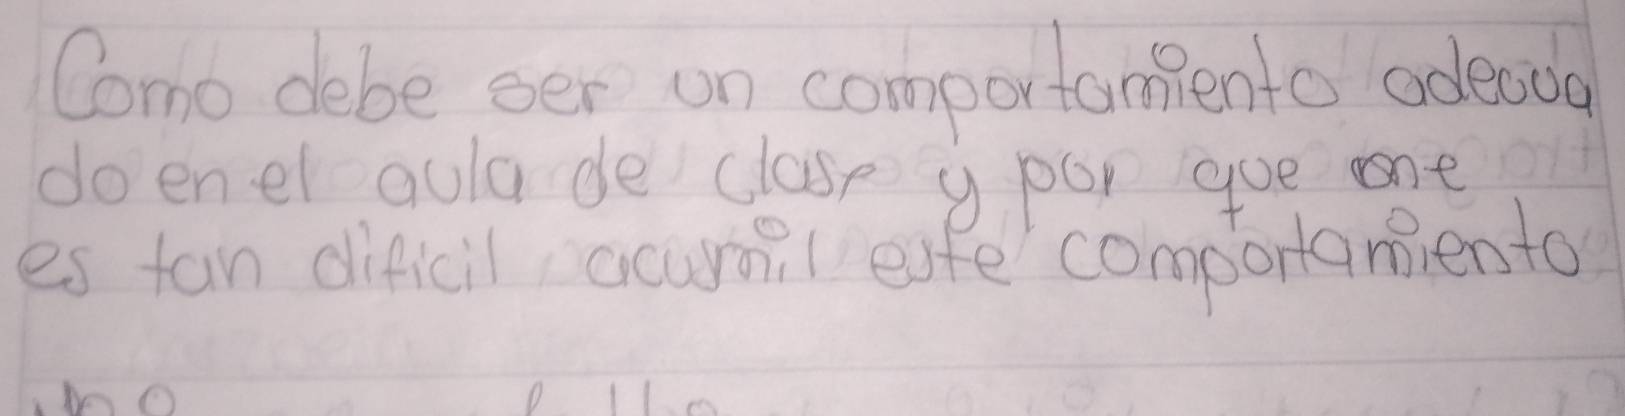 Como debe ser un comportamiento adecua
do en el aula de clase y por que me
es tan dificil acumil este comportamiento